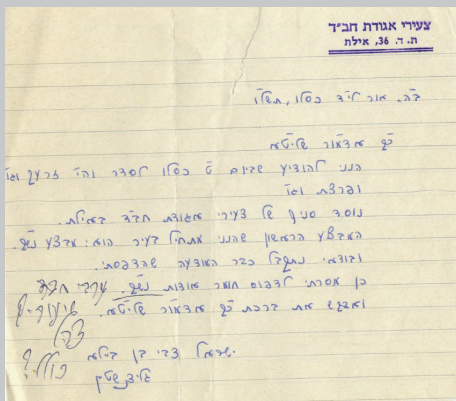 צעירי אגודת חב"ד
ת. ד. 36, אילת
ב"ה, אור לי"ד כסלו, תשל"ו
כ"ק אדמו"ר שליט"א
הנני להודיע שביום ט' כסלו לסדר והי' זרעך וגו'
ופרצת וגו'
נוסד סניף של צעירי אגודת חב"ד באילת.
המבצע הראשון שהנני מתחיל בעיר הוא: מבצע נש"ק.
ובודאי נתקבל כבר המודעה שהדפסתי.
כן מסרתי לדפוס חומר אודות נש"ק.
ואבקש את ברכת כ"ק אדמו"ר שליט"א.
ישראל צבי בן בילא
גליצנשטיין